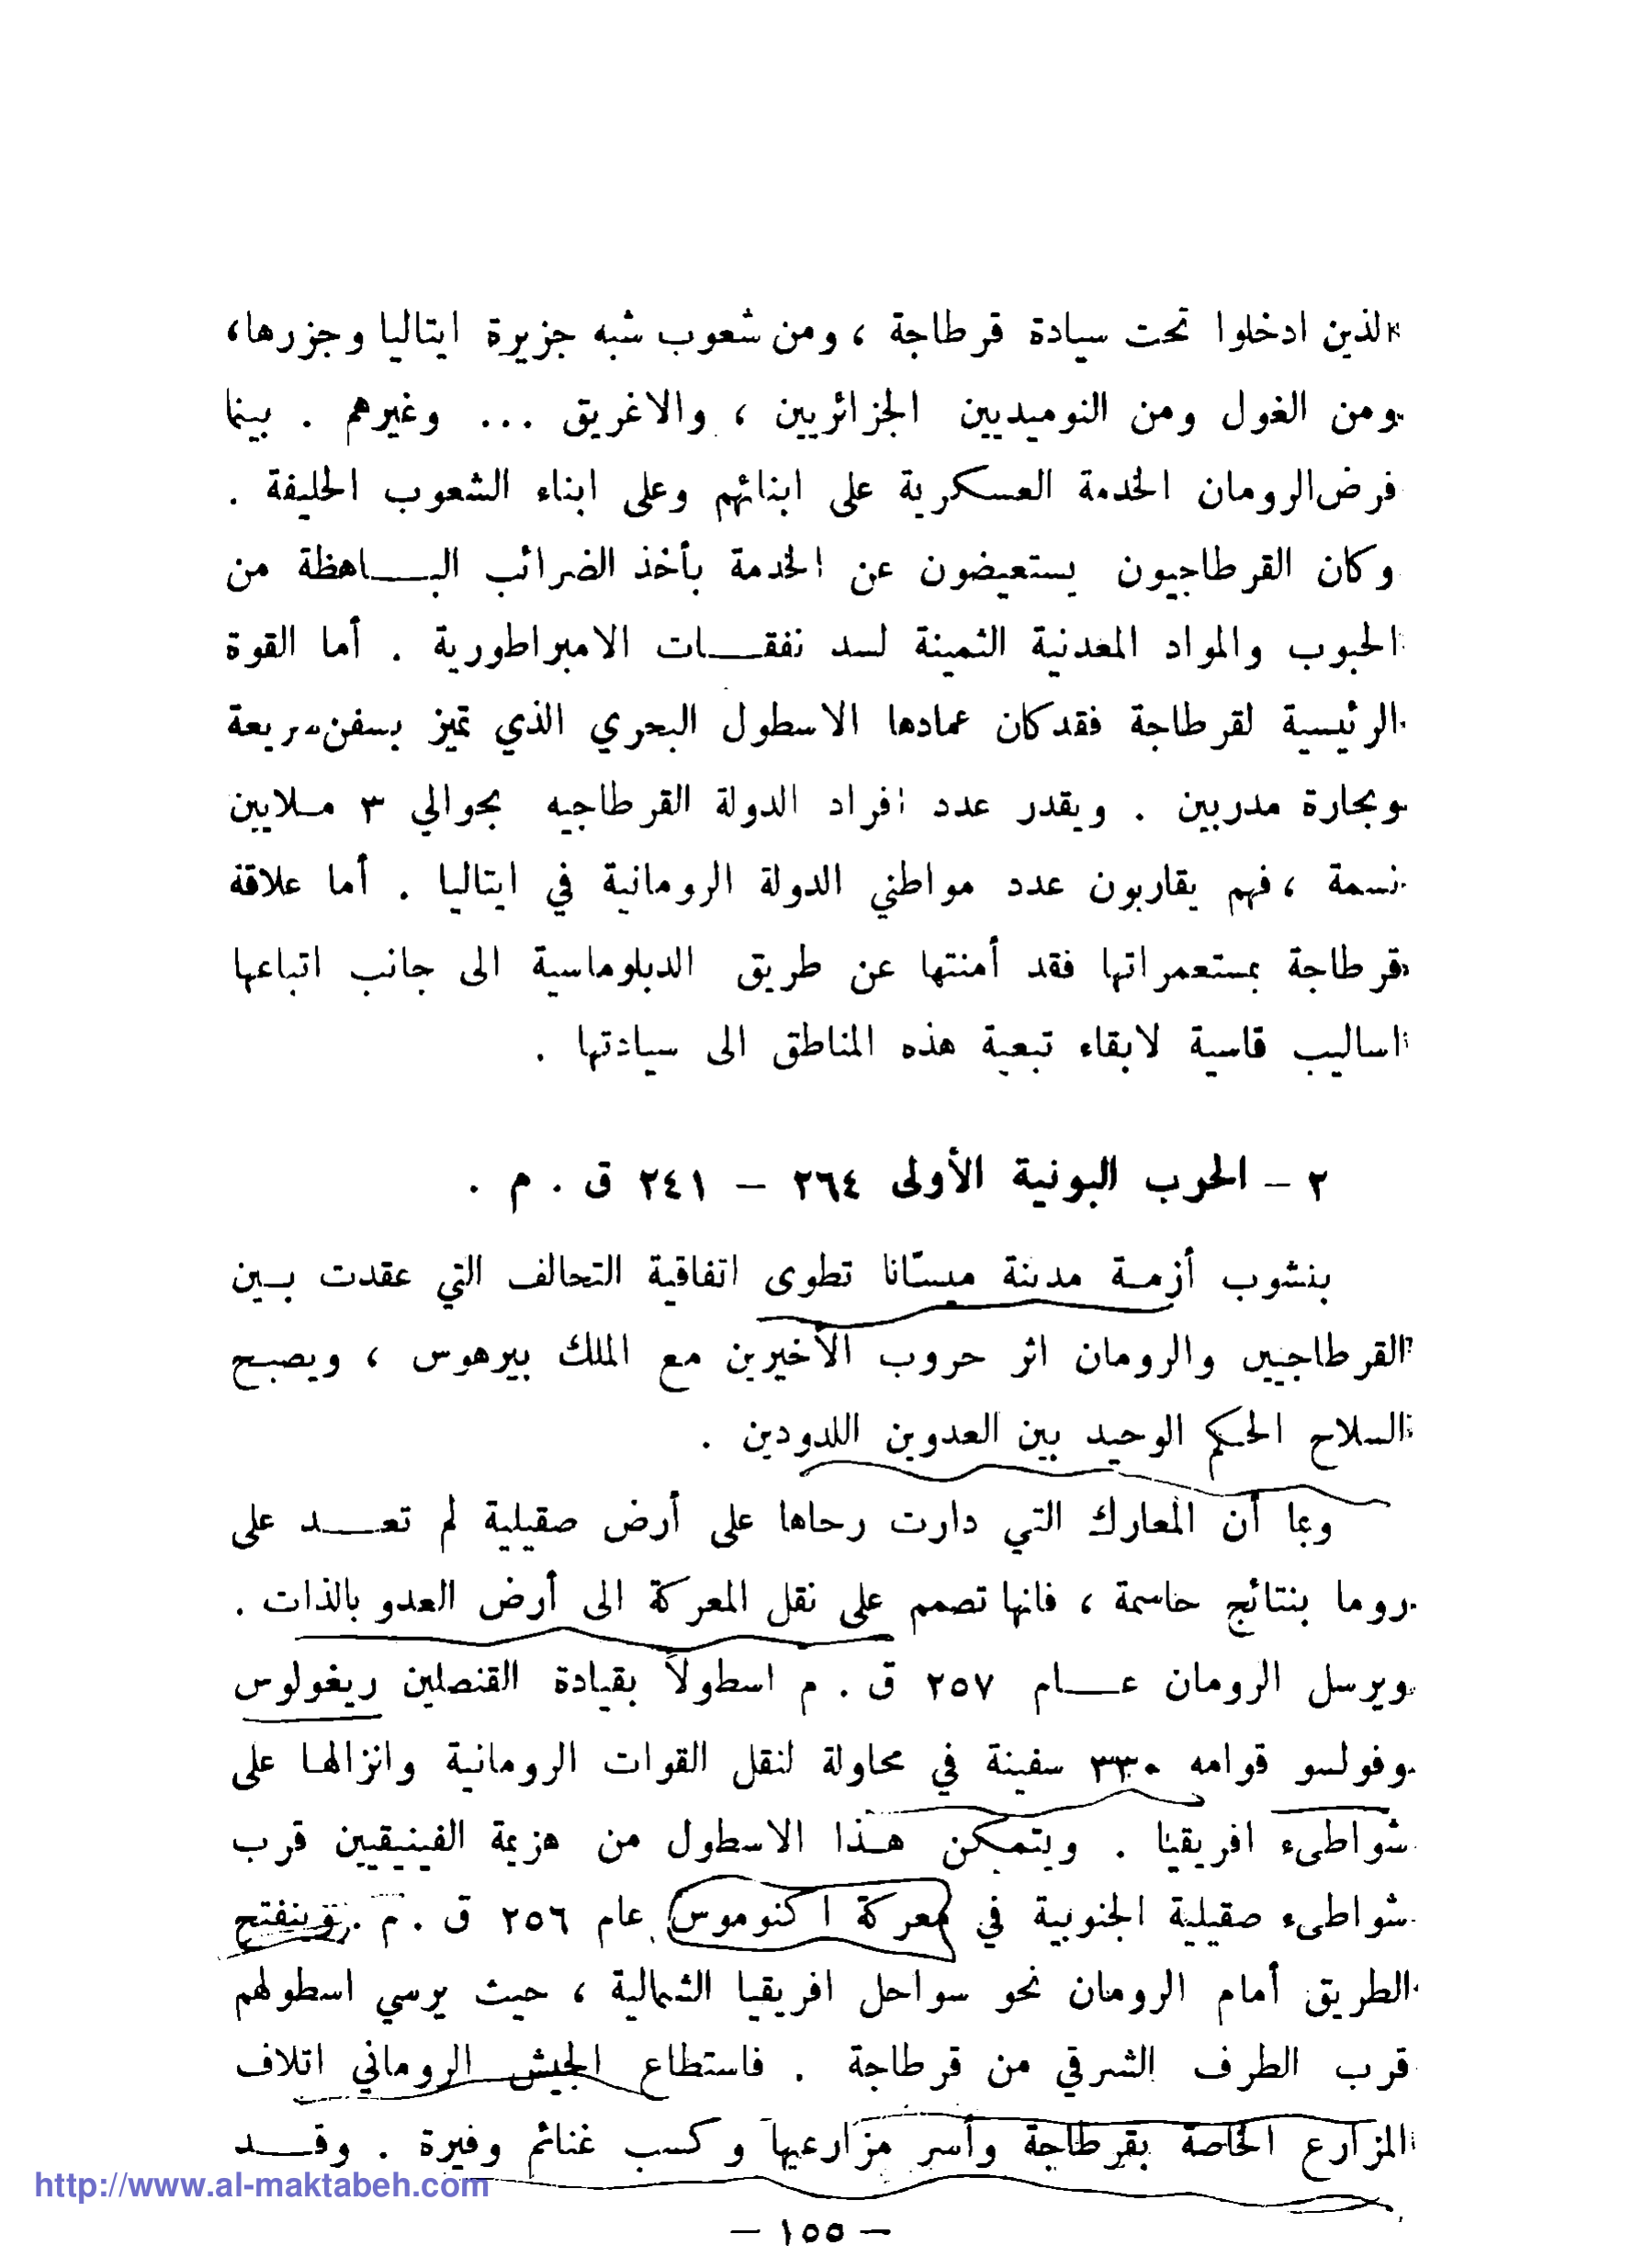 الذين ادخلوا تحت سيادة قرطاجة ، ومن شعوب شبه جزيرة ايتاليا وجزرها،
ومن الغول ومن النوميديين الجزائريين ، والاغريق ... وغيرهم . بينما
فرض الرومان الخدمة العسكرية على ابنائهم وعلى ابناء الشعوب الحليفة .
وكان القرطاجيون يستعيضون عن الخدمة بأخذ الضرائب البـاهظة من
الحبوب والمواد المعدنية الثمينة لسد نفقـات الامبراطورية . أما القوة
الرئيسية لقرطاجة فقد كان عمادها الاسطول البحري الذي تميز بسفن سريعة
وبحارة مدربين . ويقدر عدد افراد الدولة القرطاجيه بحوالي ٣ مـلايين
نسمة ، فهم يقاربون عدد مواطني الدولة الرومانية في ايتاليا . أما علاقة
قرطاجة بمستعمراتها فقد أمنتها عن طريق الدبلوماسية الى جانب اتباعها
اساليب قاسية لابقاء تبعية هذه المناطق الى سيادتها .
٢ - الحرب البونية الأولى ٢٦٤ - ٢٤١ ق . م .
بنشوب أزمـة مدينة ميسّانا تطوى اتفاقية التحالف التي عقدت بـين
القرطاجيين والرومان اثر حروب الأخيرين مع الملك بيرهوس ، ويصبـح
السلاح الحكم الوحيد بين العدوين اللدودين .
وبما أن المعارك التي دارت رحاها على أرض صقيلية لم تعـد على
روما بنتائج حاسمة ، فانها تصمم على نقل المعركة الى أرض العدو بالذات .
ويرسل الرومان عـام ٢٥٧ ق . م اسطولاً بقيادة القنصلين ريغولوس
وفولسو قوامه ٣٣٠ سفينة في محاولة لنقل القوات الرومانية وانزالهـا على
شواطىء افريقيا . ويتمكن هـذا الاسطول من هزيمة الفينيقيين قرب
شواطىء صقيلية الجنوبية في معركة اكنوموس عام ٢٥٦ ق . م . وينفتح
الطريق أمام الرومان نحو سواحل افريقيا الشمالية ، حيث يرسي اسطولهم
قرب الطرف الشرقي من قرطاجة . فاستطاع الجيش الروماني اتلاف
المزارع الخاصة بقرطاجة وأسر مزارعيها وكسب غنائم وفيرة . وقـد
http://www.al-maktabeh.com
- ١٥٥ -